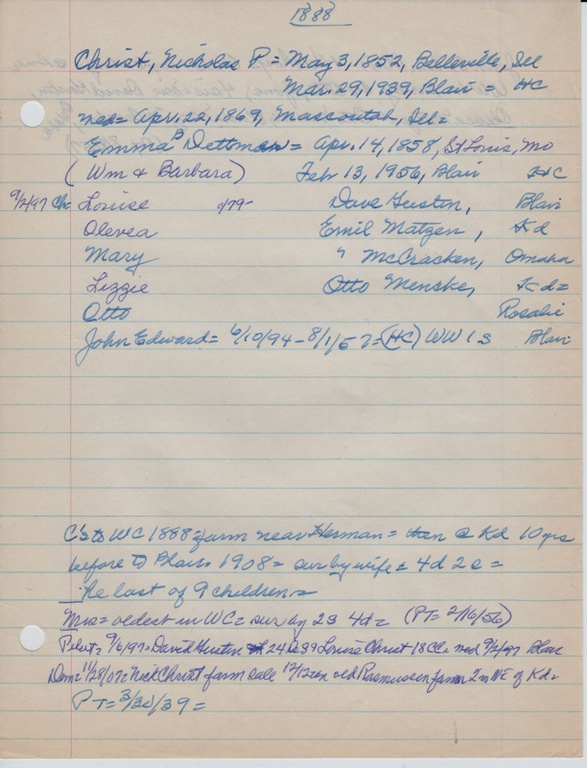 1888
Christ, Nicholas P = May 3, 1852, Belleville, Ill
Mar. 29, 1939, Blair = HC
med = Apr. 22, 1869, Mascoutah, Ill =
Emma B Dettman = Apr. 14, 1858, St Louis, Mo
(Wm & Barbara) Feb 13, 1956, Blair HC
9/2/97 Ch Louise 1/79- Dave Gustin, Blair
Olevea Emil Matzen, Kd
Mary " McCracken, Omaha
Lizzie Otto Menske, Kd =
Otto Rosalie
John Edward = 6/10/94 - 8/1/57 = (HC) WW 1 S Blair
C's to WC 1888 = farm near Herman = then @ Kd 10 yrs
before to Blair 1908 = sur by wife = 4d 2s =
He last of 9 children =
Mrs = oldest in WC = sur by 2s 4d = (PT = 2/16/56)
Pilot = 9/6/97 = David Gustin 24 & Louise Christ 18 med 9/2/97 Blair
Dem = 11/28/07 = Nick Christ farm sale 12/12 on old Rasmussen farm 2m NE of Kd =
PT = 3/30/39 =